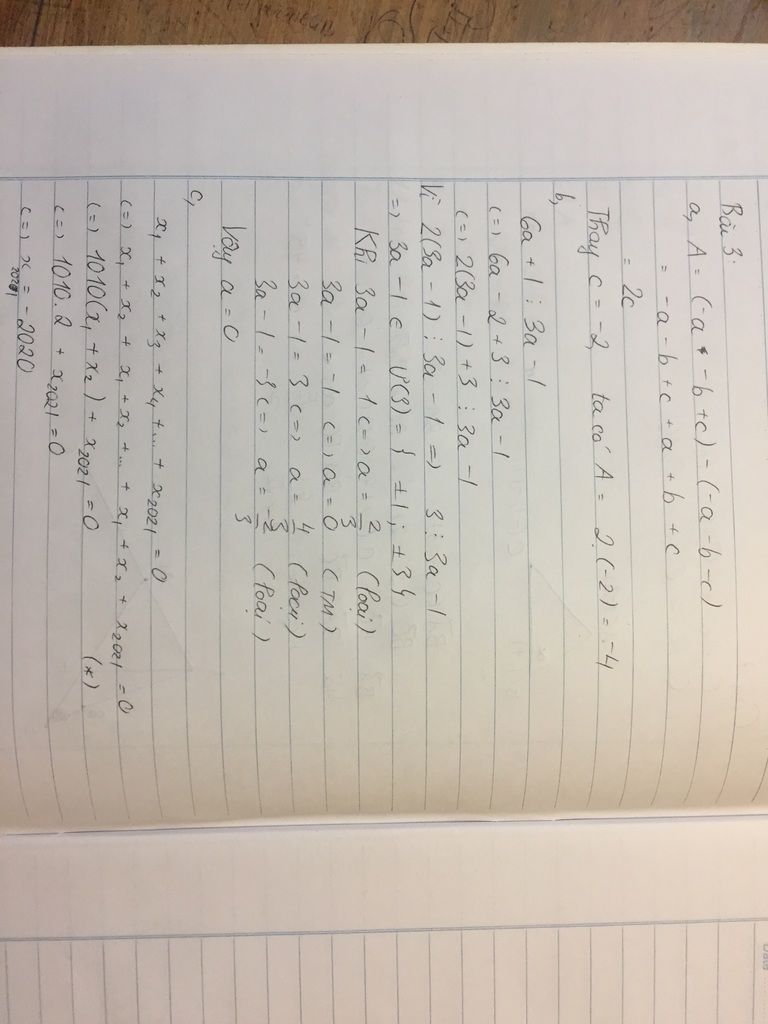 Bài 3:
a, A = (-a - b + c) - (-a - b - c)
= -a - b + c + a + b + c
= 2c
Thay c = -2, ta có A = 2.(-2) = -4
b,
6a + 1 ⋮ 3a - 1
(=) 6a - 2 + 3 ⋮ 3a - 1
(=) 2(3a - 1) + 3 ⋮ 3a - 1
Vì 2(3a - 1) ⋮ 3a - 1 => 3 ⋮ 3a - 1
=> 3a - 1 ∈ Ư(3) = { ±1; ±3 }
Khi 3a - 1 = 1 (=) a = 2/3 (loại)
3a - 1 = -1 (=) a = 0 (TM)
3a - 1 = 3 (=) a = 4/3 (loại)
3a - 1 = -3 (=) a = -2/3 (loại)
Vậy a = 0
c,
x₁ + x₂ + x₃ + x₄ + ... + x₂₀₂₁ = 0
(=) x₁ + x₂ + x₁ + x₂ + ... + x₁ + x₂ + x₂₀₂₁ = 0
(=) 1010(x₁ + x₂) + x₂₀₂₁ = 0 (*)
(=) 1010.2 + x₂₀₂₁ = 0
(=) x₂₀₂₁ = -2020